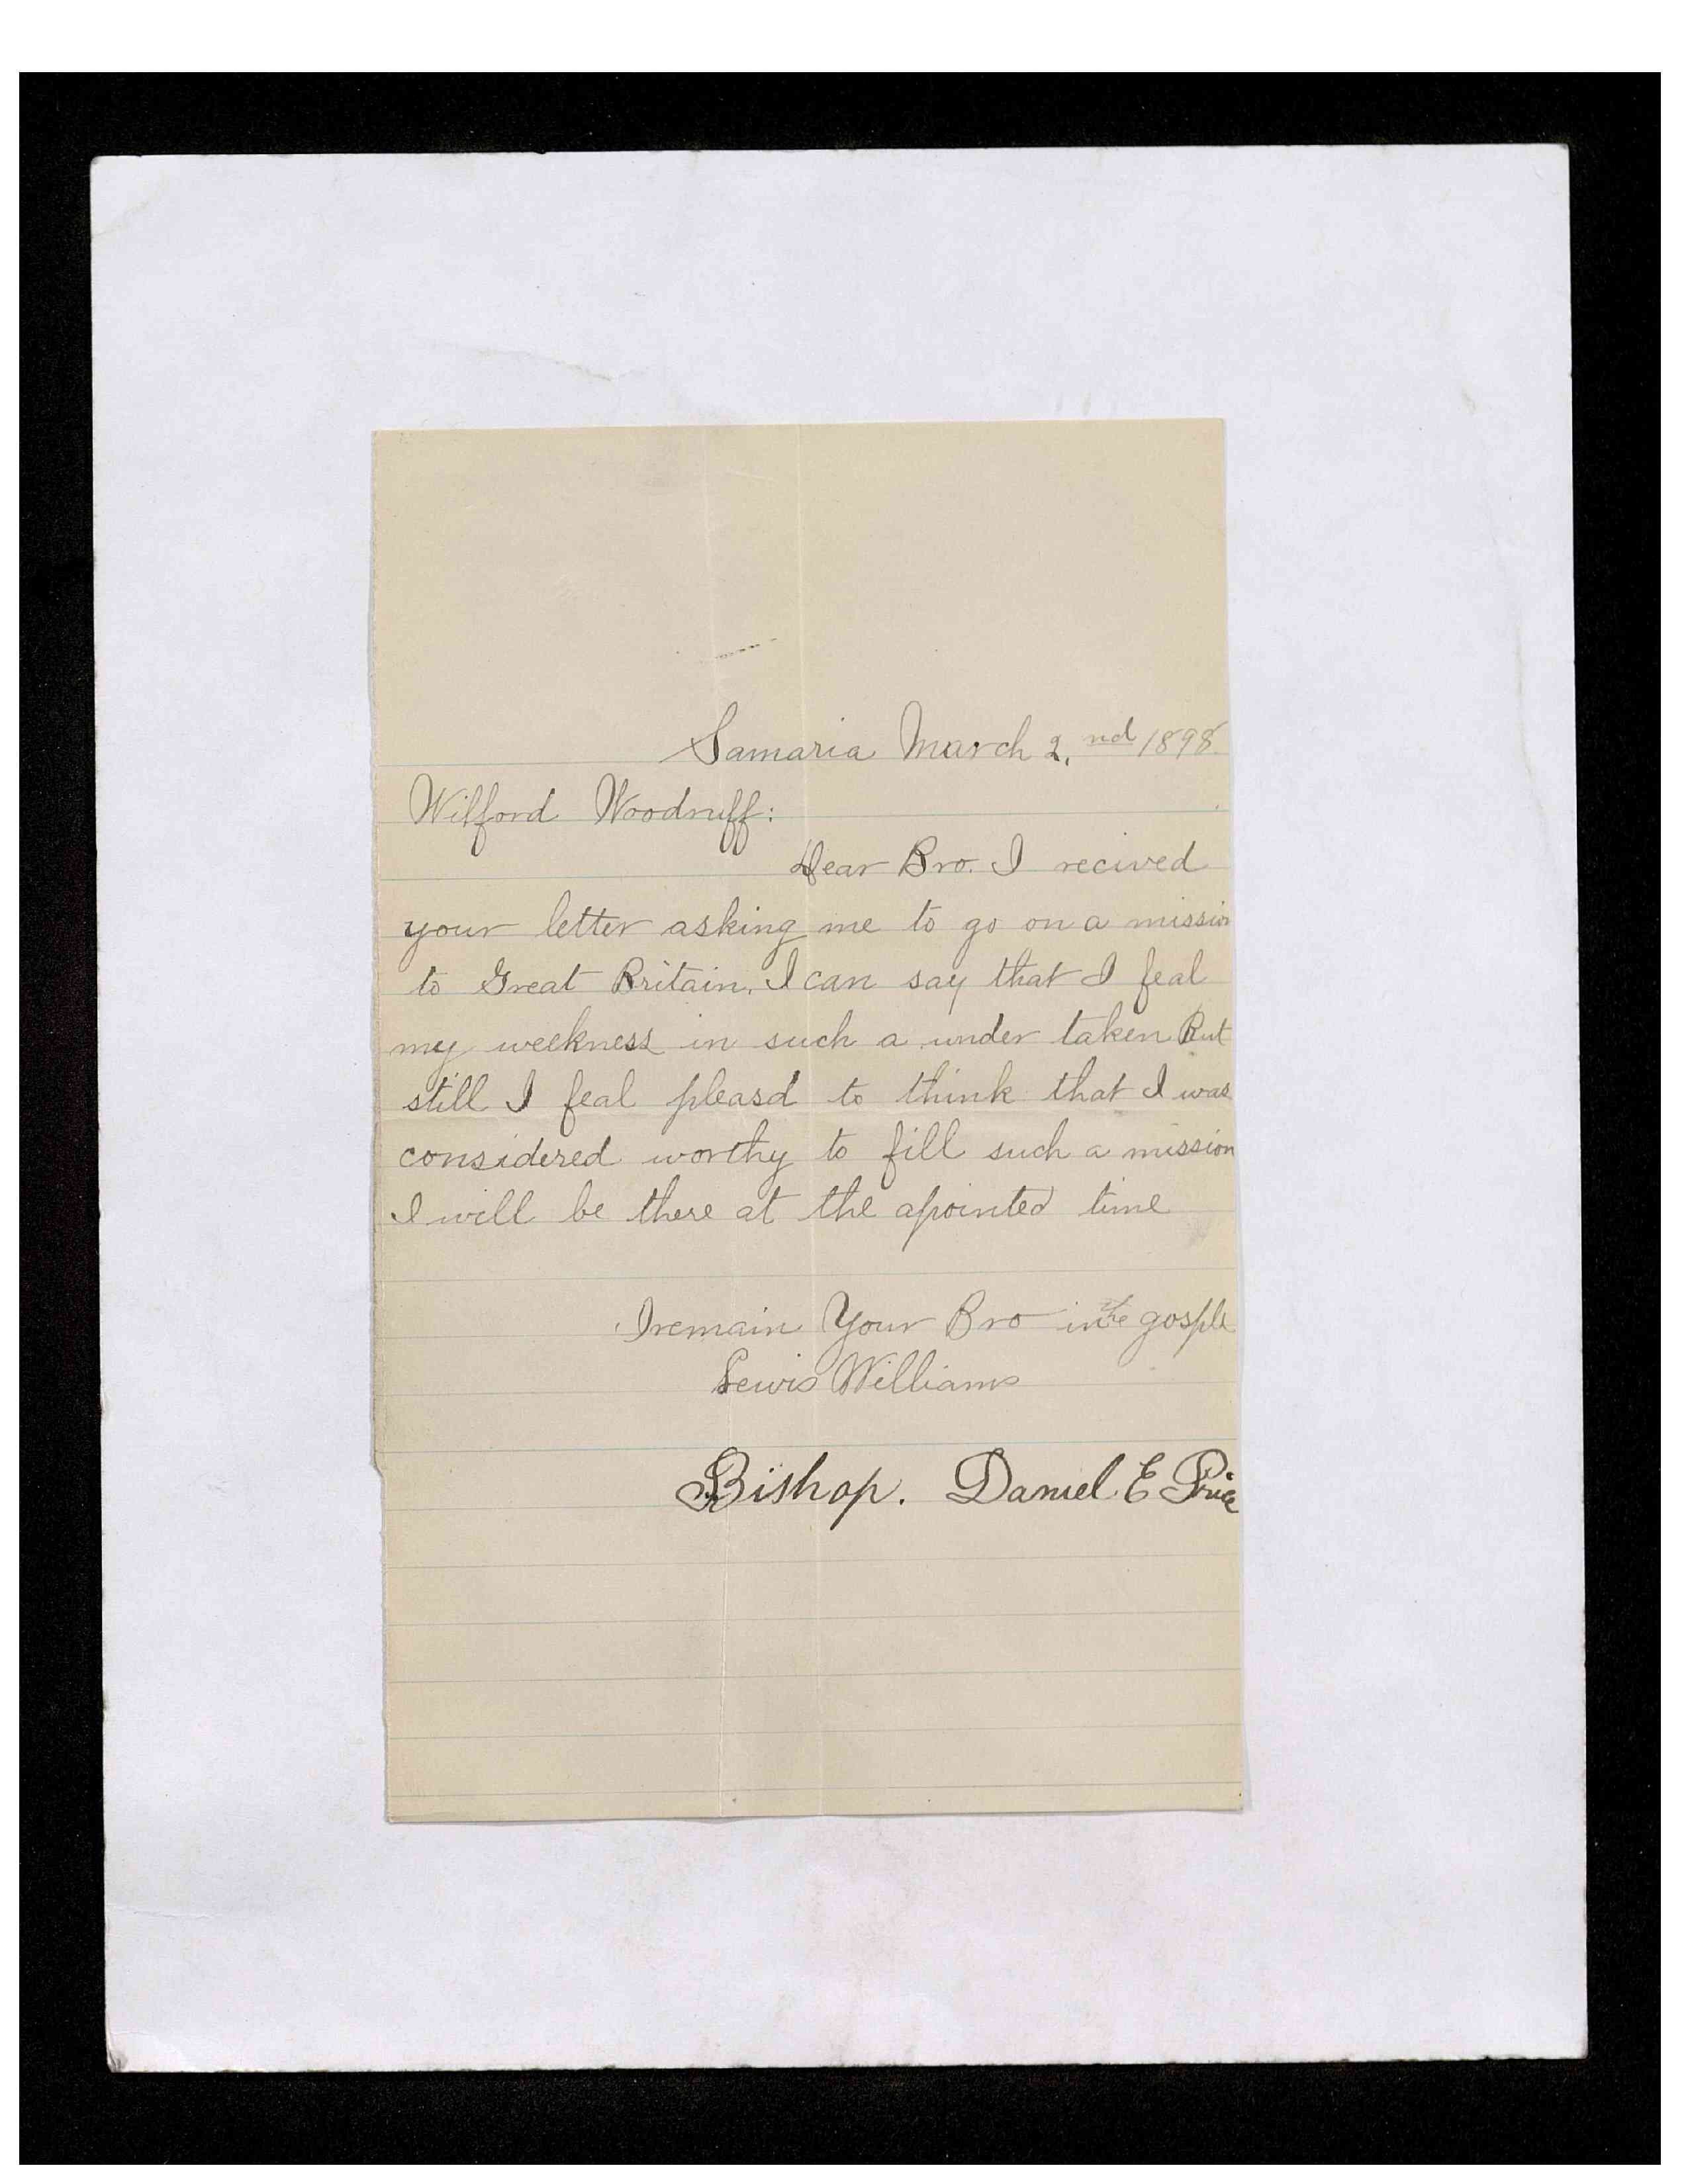 Samaria March 2, nd 1898
Wilford Woodruff:
Dear Bro. I recived
your letter asking me to go on a mission
to Great Britain. I can say that I feal
my weekness in such a under taken But
still I feal pleasd to think that I was
considered worthy to fill such a mission
I will be there at the apointed time
I remain Your Bro in the gosple
Lewis Williams
Bishop. Daniel E Price